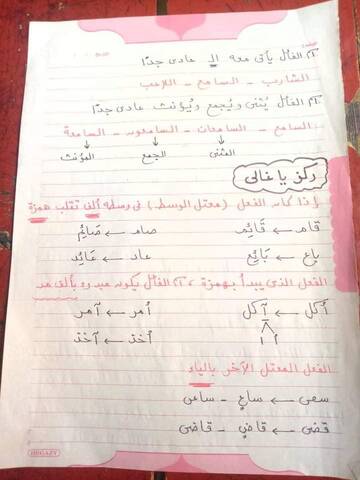 اسم الفاعل يأتى معه الـ عادى جدًا
الشارب - السامع - اللاعب
اسم الفاعل يُثنى ويُجمع ويُؤنث عادى جدًا
السامع - السامعان - السامعون - السامعة
المثنى الجمع المؤنث
ركز يا غالى
إذا كان الفعل (معتل الوسط) فى وسطه ألف تقلب همزة
قام ← قَائِم صام ← صَائِم
باع ← بَائِع عاد ← عَائِد
الفعل الذى يبدأ بهمزة، اسم الفاعل يكون مبدوء بألف مد
أكل ← آكل أمر ← آمر
أ ا أخذ ← آخذ
الفعل المعتل الآخر بالياء
سعى ← ساعٍ - ساعى
قضى ← قاضٍ - قاضى
HEGAZY